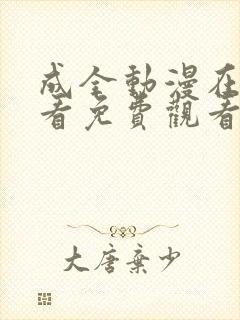 成全動漫在
看免費觀看
大唐棄少